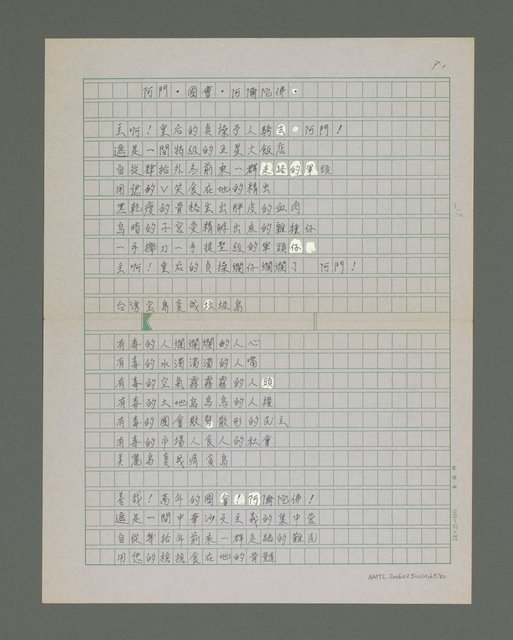 P.1
阿門·國會·阿彌陀佛·
丟啊！皇后的貞操予人騎去。阿門！
這是一間特級的五星大飯店
自從肆拾外年前來一群走路的軍頭
用您的 食在地的精虫
黑乾瘦的骨格生出胖皮的血肉
烏暗的子宮交精孵出來的雜種仔
一手擲刀一手提聖經的軍頭仔
丟啊！皇后的貞操爛仔爛爛了 阿門！
台灣宝島變成垃圾島
有毒的人爛爛爛的人心
有毒的水濁濁濁的人嘴
有毒的空氣霧霧霧的人頭
有毒的土地烏烏烏的人種
有毒的國會散 散形的民主
有毒的市場人食人的社會
美麗島變成 貪島
善哉！萬年的國會！阿彌陀佛！
這是一間中華沙文主義的集中營
自從肆拾年前來一群走路的難民
用您的槍搶食在地的骨髓
NMTL 20060250010